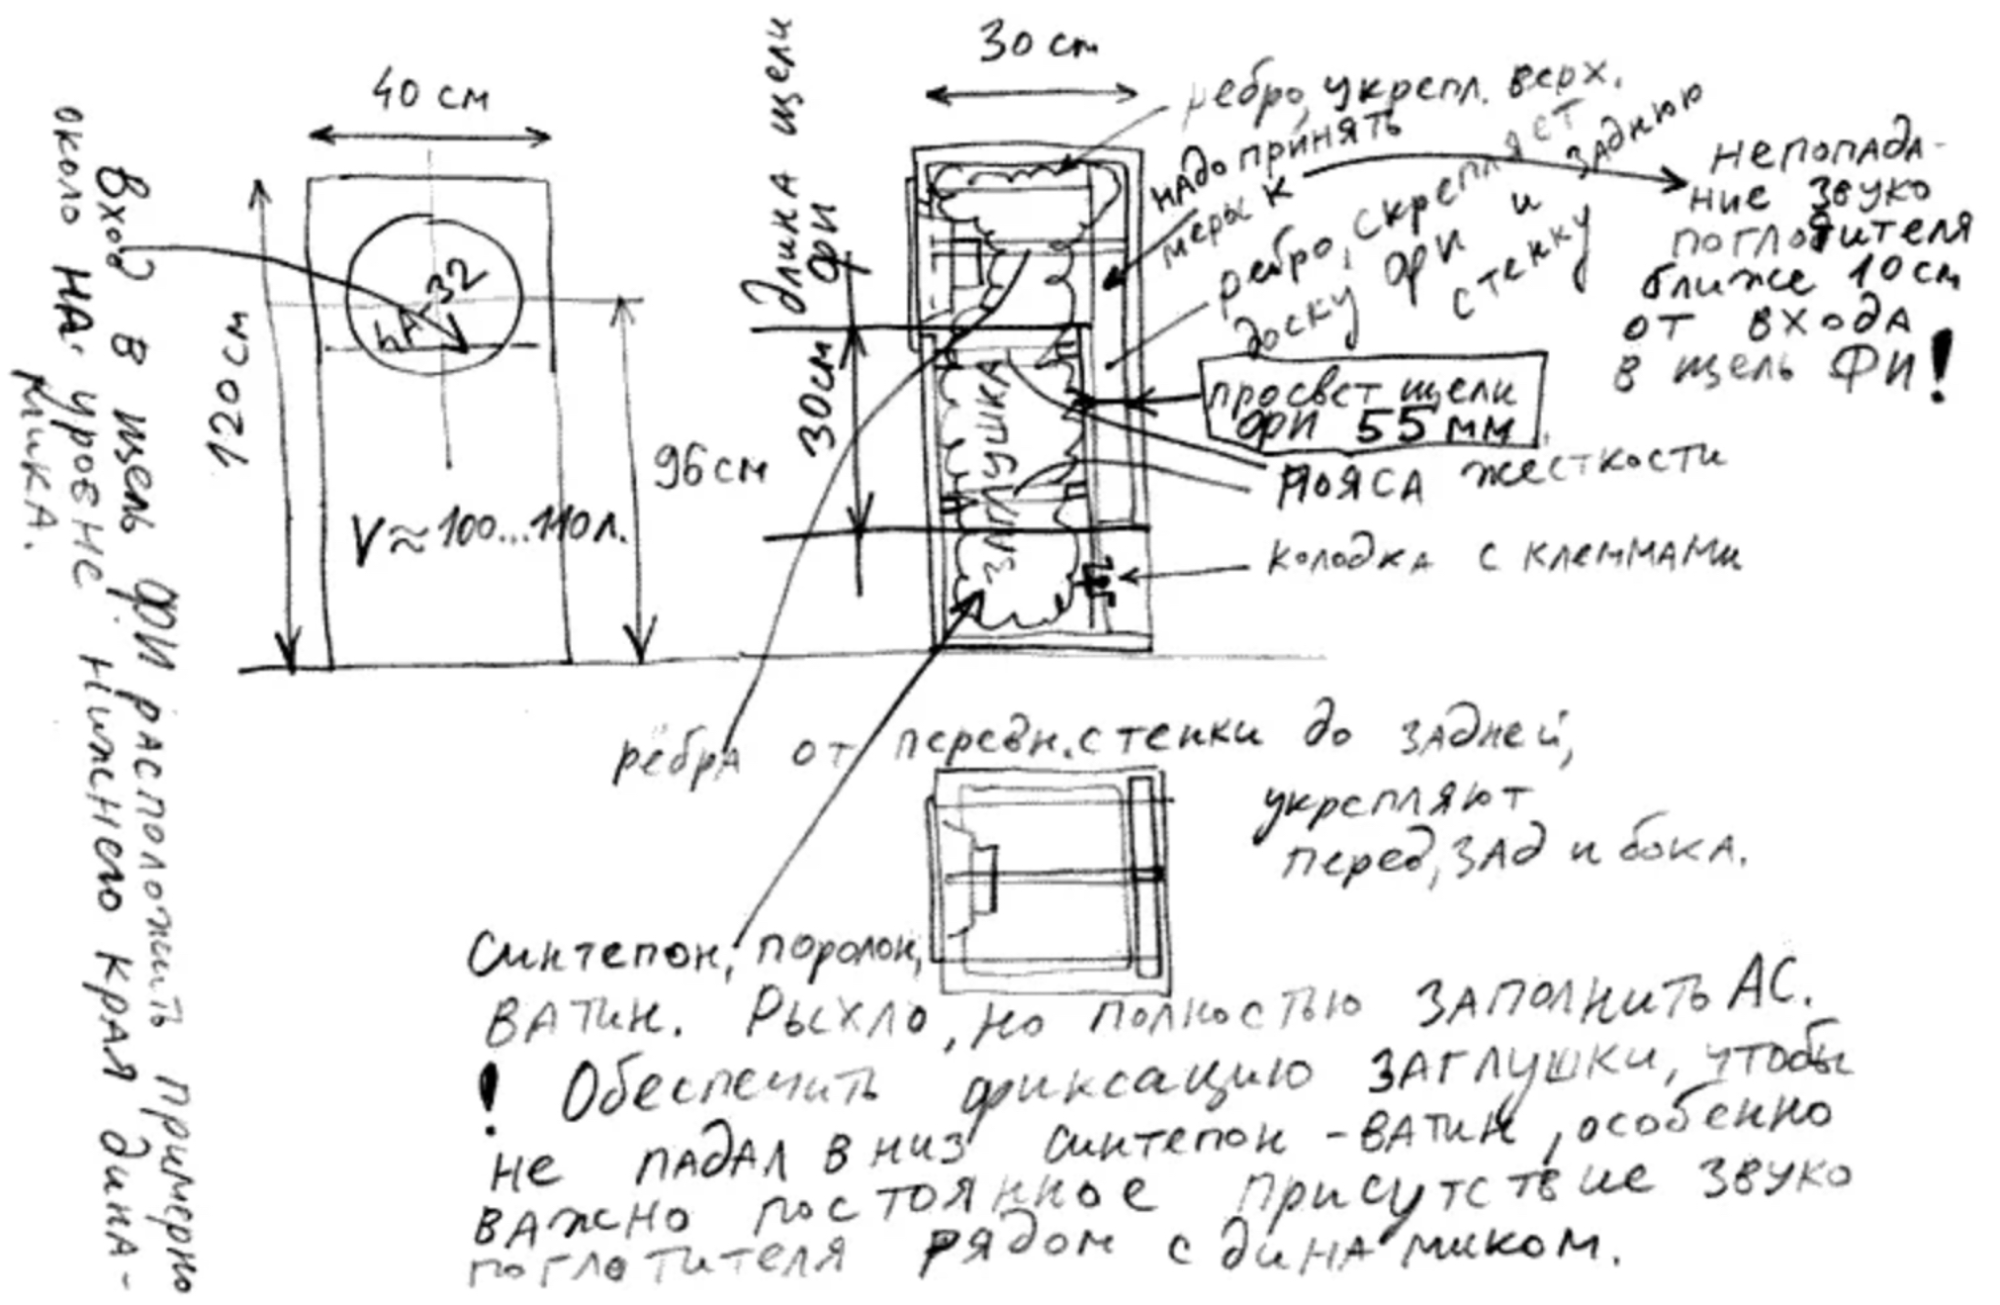 40 см
120 см
hA-32
96 см
V≈100...110л.
Вход в щель ФИ расположить примерно
около НА уровне нижнего края дина-
мика.
30 см
длина щели
ФИ
30см
ребро, укрепл. верх.
надо принять
меры к
непопада-
ние звуко
поглотителя
ближе 10см
от входа
в щель ФИ!
ребро, скрепляет
доску ФИ и заднюю
стенку
просвет щели
ФИ 55 мм
пояса жесткости
колодка с клеммами
заглушка
рёбра от передн. стенки до задней,
укрепляют
перед, зад и бока.
Синтепон, поролон,
ватин. Рыхло, но полностью заполнить АС.
! Обеспечить фиксацию заглушки, чтобы
не падал в низ синтепон-ватин, особенно
важно постоянное присутствие звуко
поглотителя рядом с динамиком.